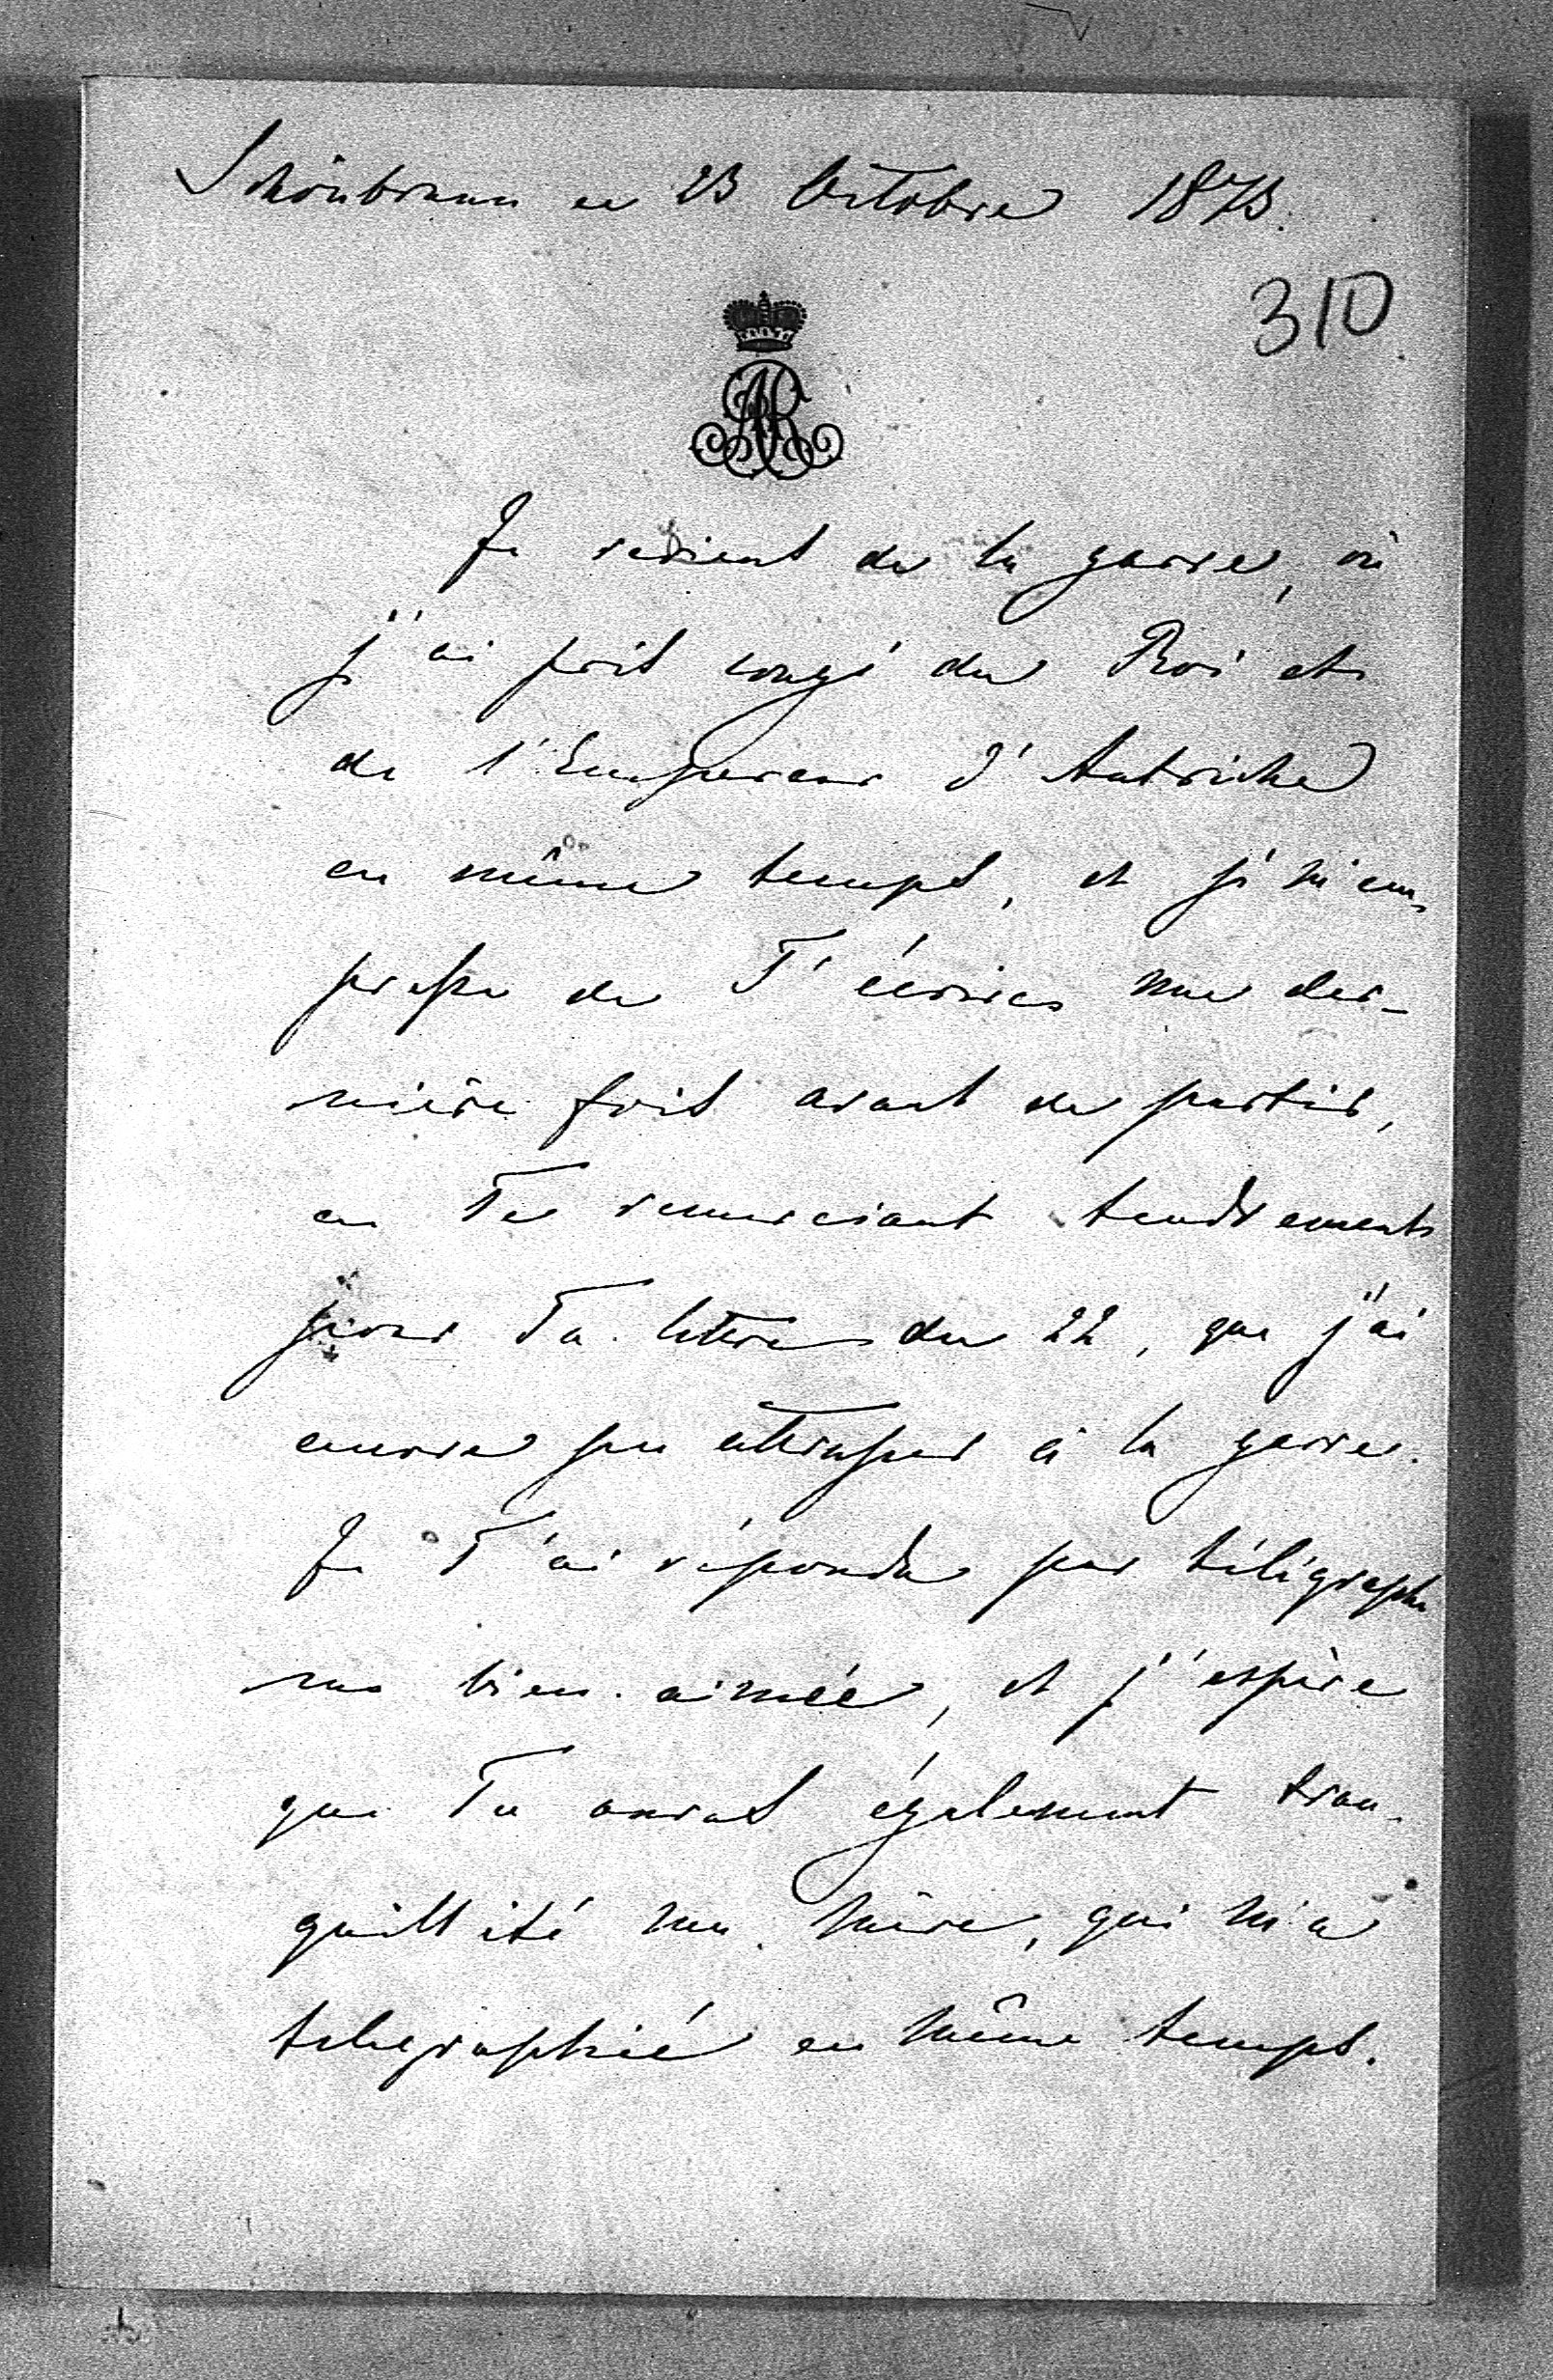 Schönbrunn ce 23 Octobre 1873.
310
AR
Je reviens de la garre, où
j'ai pris congé du Roi et
de l'Empereur d'Autriche
en même temps, et je m'em-
presse de T'écrire une der-
nière fois avant de partir,
en Te remerciant tendrement
pour Ta lettre du 22, que j'ai
encore pu attraper à la garre.
Je T'ai répondu par télégraphe
ma bien-aimée, et j'espère
que Tu auras également tran-
quillité ma mère, qui m'a
telegraphié en même temps.